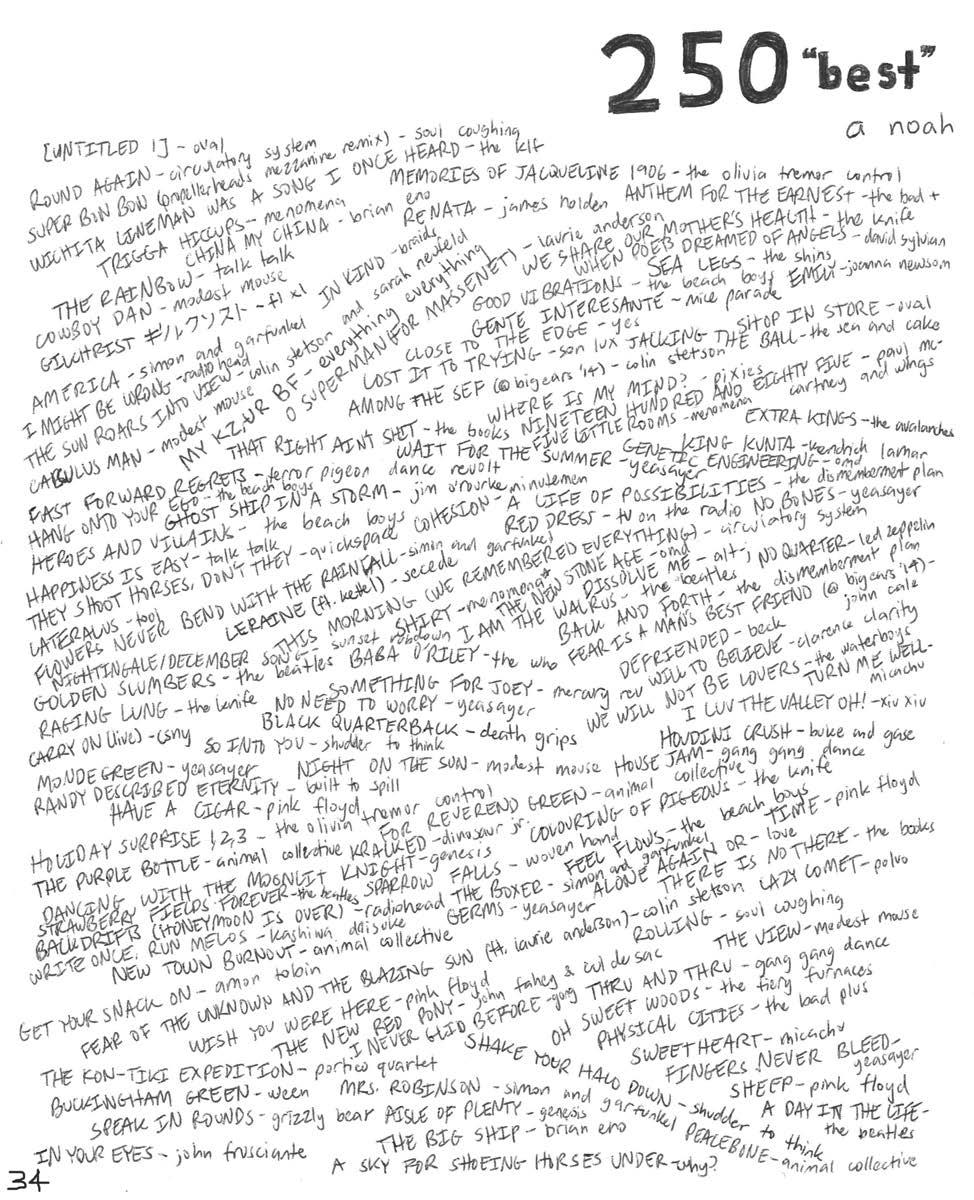 250 "best"
a noah
[UNTITLED 1] - oval
ROUND AGAIN - circulatory system
SUPER BON BON (propellerheads mezzanine remix) - soul coughing
WICHITA LINEMAN WAS A SONG I ONCE HEARD - the klf
MEMORIES OF JACQUELINE 1906 - the olivia tremor control
TRIGGA HICCUPS - menomena
CHINA MY CHINA - brian eno
RENATA - james holden
ANTHEM FOR THE EARNEST - the bad +
THE RAINBOW - talk talk
COWBOY DAN - modest mouse
GILCHRIST ギルクリスト - +1 x1
IN KIND - braids
WE SHARE OUR MOTHER'S HEALTH - the knife
WHEN POETS DREAMED OF ANGELS - david sylvian
SEA LEGS - the shins
GOOD VIBRATIONS - the beach boys
EMILY - joanna newsom
GENTE INTERESANTE - mice parade
AMERICA - simon and garfunkel
I MIGHT BE WRONG - radiohead
THE SUN ROARS INTO VIEW - colin stetson and sarah neufeld
CABULUS MAN - modest mouse
MY KZ, UR BF - everything everything
O SUPERMAN (FOR MASSENET) - laurie anderson
CLOSE TO THE EDGE - yes
SHOP IN STORE - oval
LOST IT TO TRYING - son lux
JACKING THE BALL - the sea and cake
AMONG THE SEF (@ big ears '14) - colin stetson
WHERE IS MY MIND? - pixies
NINETEEN HUNDRED AND EIGHTY FIVE - paul mc-
cartney and wings
THAT RIGHT AIN'T SHIT - the books
FIVE LITTLE ROOMS - menomena
EXTRA KINGS - the avalanches
WAIT FOR THE SUMMER - yeasayer
KING KUNTA - kendrick lamar
GENETIC ENGINEERING - omd
FAST FORWARD REGRETS - terror pigeon dance revolt
HANG ONTO YOUR EGO - the beach boys
GHOST SHIP IN A STORM - jim o'rourke
COHESION - minutemen
A LIFE OF POSSIBILITIES - the dismemberment plan
HEROES AND VILLAINS - the beach boys
RED DRESS - tv on the radio
NO BONES - yeasayer
HAPPINESS IS EASY - talk talk
THEY SHOOT HORSES, DON'T THEY - quickspace
LATERALUS - tool
FLOWERS NEVER BEND WITH THE RAINFALL - simon and garfunkel
LERAINE (ft. kettel) - secede
THIS MORNING (WE REMEMBERED EVERYTHING) - circulatory system
THE NEW STONE AGE - omd
SHIRT - menomena
DISSOLVE ME - alt-j
NO QUARTER - led zeppelin
NIGHTINGALE/DECEMBER SONG - sunset rubdown
I AM THE WALRUS - the beatles
BACK AND FORTH - the dismemberment plan
GOLDEN SLUMBERS - the beatles
BABA O'RILEY - the who
FEAR IS A MAN'S BEST FRIEND (@ big ears '14) -
john cale
DEFRIENDED - beck
RAGING LUNG - the knife
SOMETHING FOR JOEY - mercury rev
WILL TO BELIEVE - clarence clarity
NO NEED TO WORRY - yeasayer
WE WILL NOT BE LOVERS - the waterboys
TURN ME WELL -
micachu
CARRY ON (live) - csny
BLACK QUARTERBACK - death grips
I LUV THE VALLEY OH! - xiu xiu
SO INTO YOU - shudder to think
HOUDINI CRUSH - buke and gase
MONDEGREEN - yeasayer
NIGHT ON THE SUN - modest mouse
HOUSE JAM - gang gang dance
RANDY DESCRIBED ETERNITY - built to spill
HAVE A CIGAR - pink floyd
FOR REVEREND GREEN - animal collective
COLOURING OF PIGEONS - the knife
HOLIDAY SURPRISE 1,2,3 - the olivia tremor control
TIME - pink floyd
THE PURPLE BOTTLE - animal collective
KRACKED - dinosaur jr.
FEEL FLOWS - the beach boys
DANCING WITH THE MOONLIT KNIGHT - genesis
SPARROW FALLS - woven hand
ALONE AGAIN OR - love
STRAWBERRY FIELDS FOREVER - the beatles
THE BOXER - simon and garfunkel
THERE IS NO THERE - the books
BACKDRIFTS (HONEYMOON IS OVER) - radiohead
GERMS - yeasayer
LAZY COMET - polvo
WRITE ONCE, RUN MELOS - kashiwa daisuke
NEW TOWN BURNOUT - animal collective
ROLLING - soul coughing
GET YOUR SNACK ON - amon tobin
FEAR OF THE UNKNOWN AND THE BLAZING SUN (ft. laurie anderson) - colin stetson
THE VIEW - modest mouse
WISH YOU WERE HERE - pink floyd
THE NEW RED PONY - john fahey & cul de sac
I NEVER GLID BEFORE - gong
THRU AND THRU - gang gang dance
OH SWEET WOODS - the fiery furnaces
PHYSICAL CITIES - the bad plus
THE KON-TIKI EXPEDITION - portico quartet
SHAKE YOUR HALO DOWN - shudder to think
SWEETHEART - micachu
FINGERS NEVER BLEED -
yeasayer
BUCKINGHAM GREEN - ween
MRS. ROBINSON - simon and garfunkel
SHEEP - pink floyd
SPEAK IN ROUNDS - grizzly bear
AISLE OF PLENTY - genesis
A DAY IN THE LIFE -
the beatles
IN YOUR EYES - john frusciante
THE BIG SHIP - brian eno
PEACEBONE - animal collective
A SKY FOR SHOEING HORSES UNDER - why?
34